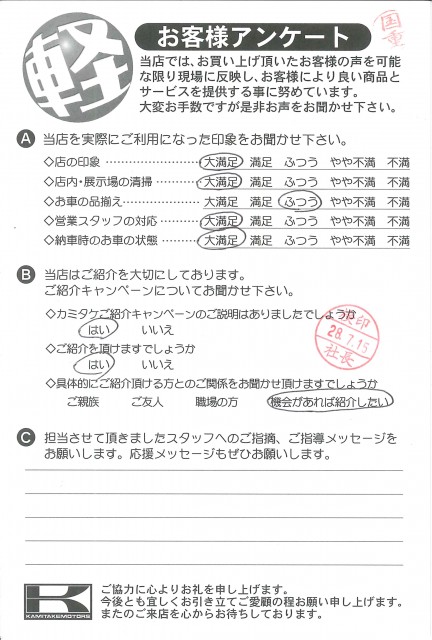 軽
お客様アンケート
国重
当店では、お買い上げ頂いたお客様の声を可能
な限り現場に反映し、お客様により良い商品と
サービスを提供する事に努めています。
大変お手数ですが是非お声をお聞かせ下さい。
A 当店を実際にご利用になった印象をお聞かせ下さい。
◇店の印象 大満足 満足 ふつう やや不満 不満
◇店内・展示場の清掃 大満足 満足 ふつう やや不満 不満
◇お車の品揃え 大満足 満足 ふつう やや不満 不満
◇営業スタッフの対応 大満足 満足 ふつう やや不満 不満
◇納車時のお車の状態 大満足 満足 ふつう やや不満 不満
B 当店はご紹介を大切にしております。
ご紹介キャンペーンについてお聞かせ下さい。
◇カミタケご紹介キャンペーンのご説明はありましたでしょうか
はい いいえ
印
28.7.15
社長
◇ご紹介を頂けますでしょうか
はい いいえ
◇具体的にご紹介頂ける方とのご関係をお聞かせ頂けますでしょうか
ご親族 ご友人 職場の方 機会があれば紹介したい
C 担当させて頂きましたスタッフへのご指摘、ご指導メッセージを
お願いします。応援メッセージもぜひお願いします。
K
KAMITAKEMOTORS
ご協力に心よりお礼を申し上げます。
今後とも宜しくお引き立てご愛顧の程お願い申し上げます。
またのご来店を心からお待ちしております。